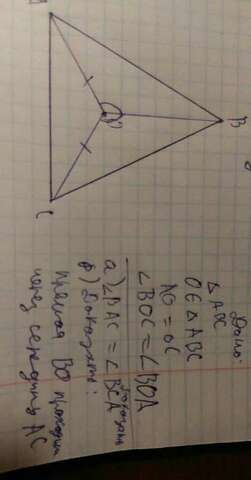 A
B
O
C
Дано:
△ABC
O∈△ABC
AO = OC
∠BOC = ∠BOA
Доказать
а) ∠BAC = ∠BCA
б) Доказать:
прямая BO проходит
через середину AC